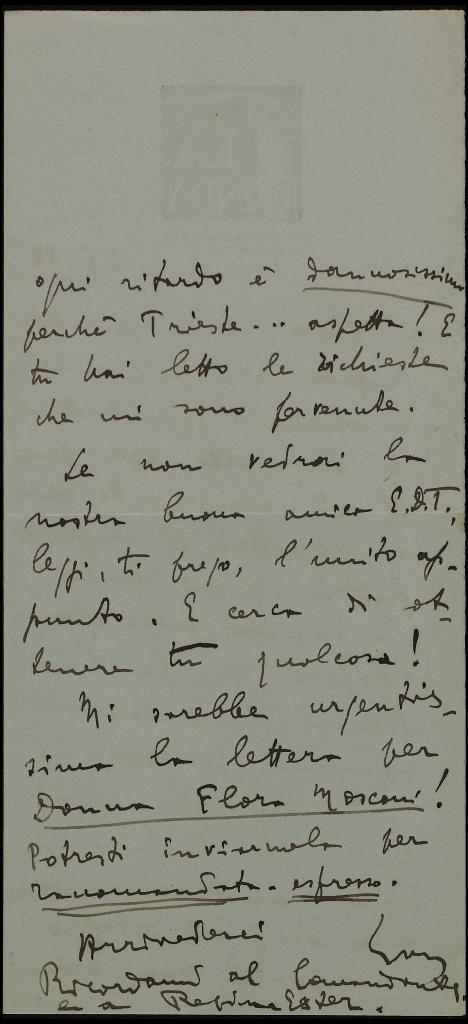 ogni ritardo è dannosissimo
perchè Trieste... aspetta! E
tu hai letto le richieste
che mi sono pervenute.
Se non vedrai la
nostra buona amica E.D.T.,
leggi, ti prego, l'unito ap-
punto. E cerca di ot-
tenere tu qualcosa!
Mi sarebbe urgentis-
sima la lettera per
Donna Flora Mosconi!
Potresti inviarmela per
racomandata-espresso.
Arrivederci
Ricordami al Comandante,
e a Regina Ester.